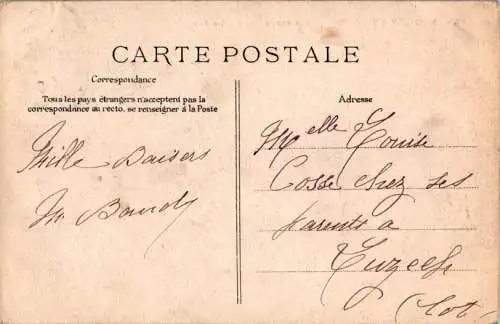 CARTE POSTALE
Correspondance
Tous les pays étrangers n'acceptent pas la
correspondance au recto, se renseigner à la Poste
Mille Baisers
M.
Adresse
Melle Louise
Cosse chez ses
parents a
(Lot)